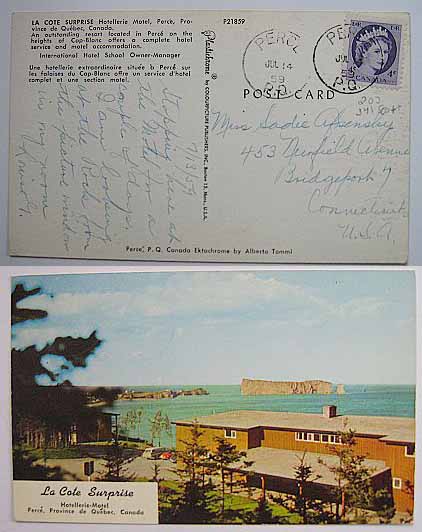 LA COTE SURPRISE Hotellerie Motel, Perce, Pro-
vince de Québec, Canada.
An outstanding resort located in Percé on
the heights of Cap-Blanc offers a complete hotel
service and motel accommodation.
International Hotel School Owner-Manager
Une hotellerie extraordinaire située à Percé sur
les falaises du Cap-Blanc offre un service d'hotel
complet et une section motel.
P21859
7/13/59
Stopping here at
this Motel for a
couple of days.
I am looking
at the Rock from
the picture window
in my room
Plastichrome ®
by COLOURPICTURE PUBLISHERS, INC. Boston 15, Mass., U.S.A.
PERCÉ
JUL 14
59
P.Q.
PERCÉ
JUL
59
P.Q.
CANADA
4¢
POST CARD
Miss Sadie
453 Newfield Avenue
Bridgeport 7
Connecticut
U.S.A.
Perce, P. Q. Canada Ektachrome by Alberto Tommi
La Cote Surprise
Hotellerie-Motel
Percé, Province de Québec, Canada